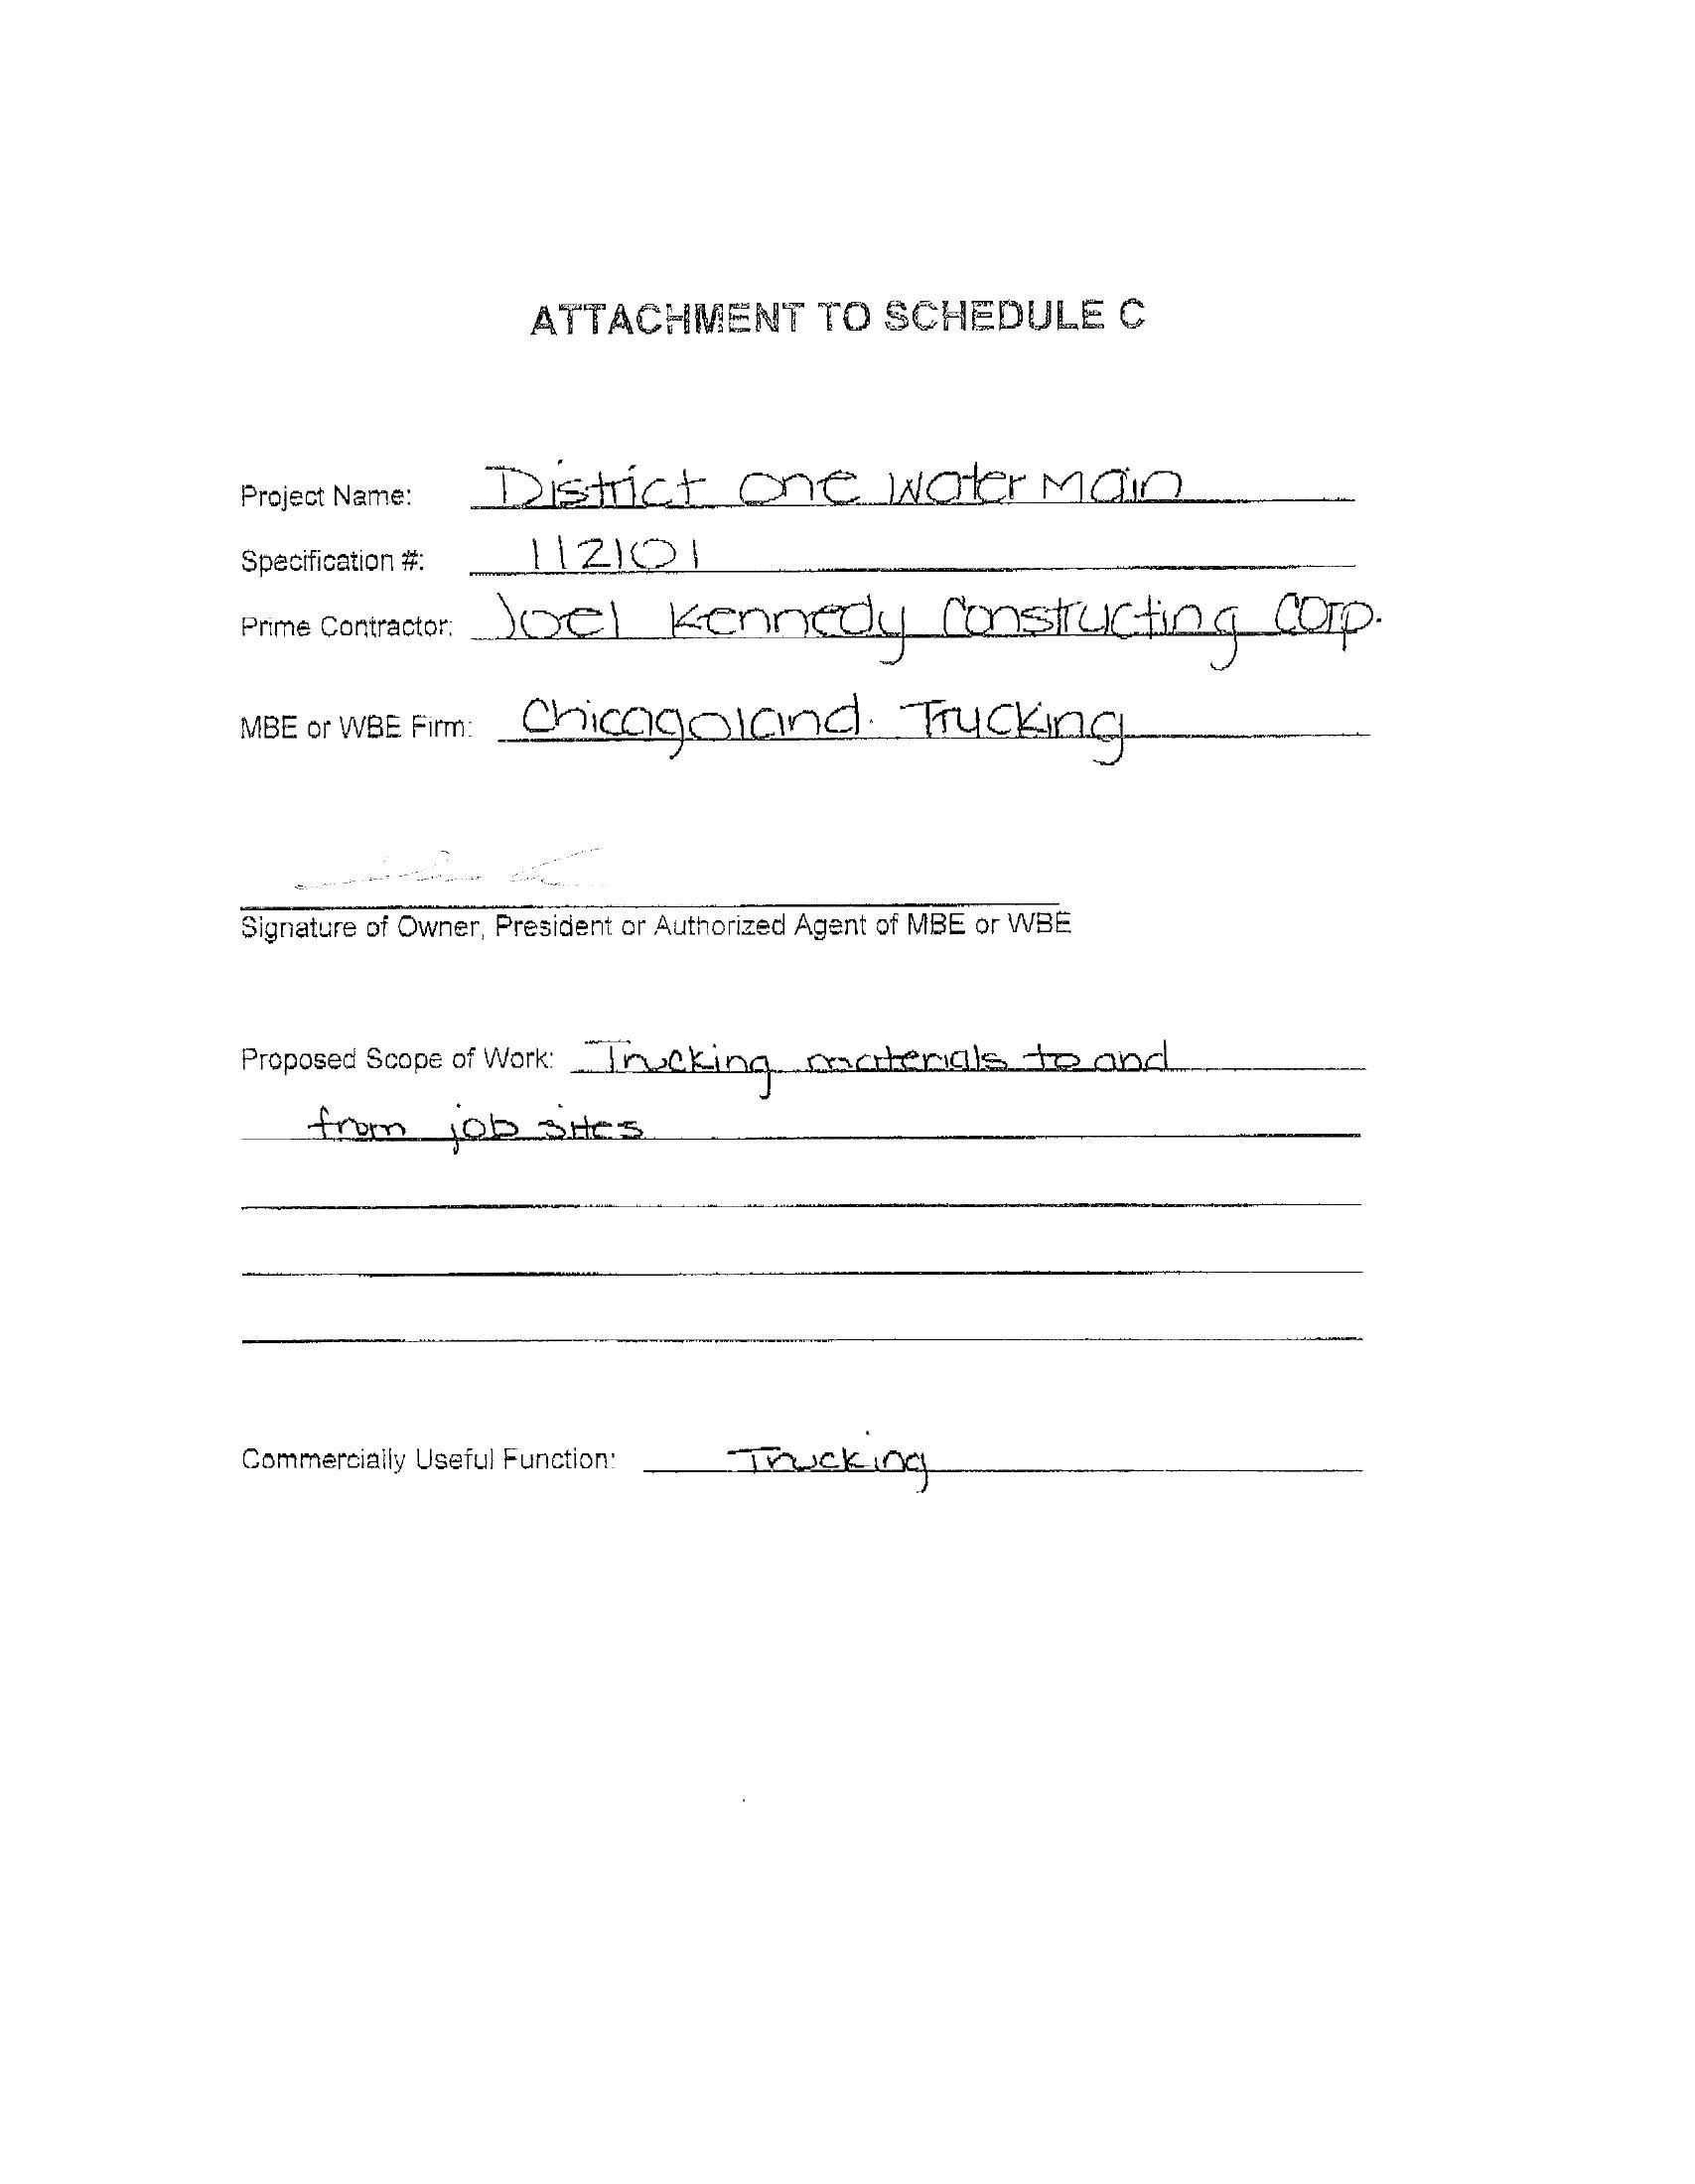 ATTACHMENT TO SCHEDULE C
Project Name: District One Water Main
Specification #: 112101
Prime Contractor: Joel Kennedy Constructing Corp.
MBE or WBE Firm: Chicagoland Trucking
Signature of Owner, President or Authorized Agent of MBE or WBE
Proposed Scope of Work: Trucking materials to and
from job sites
Commercially Useful Function: Trucking